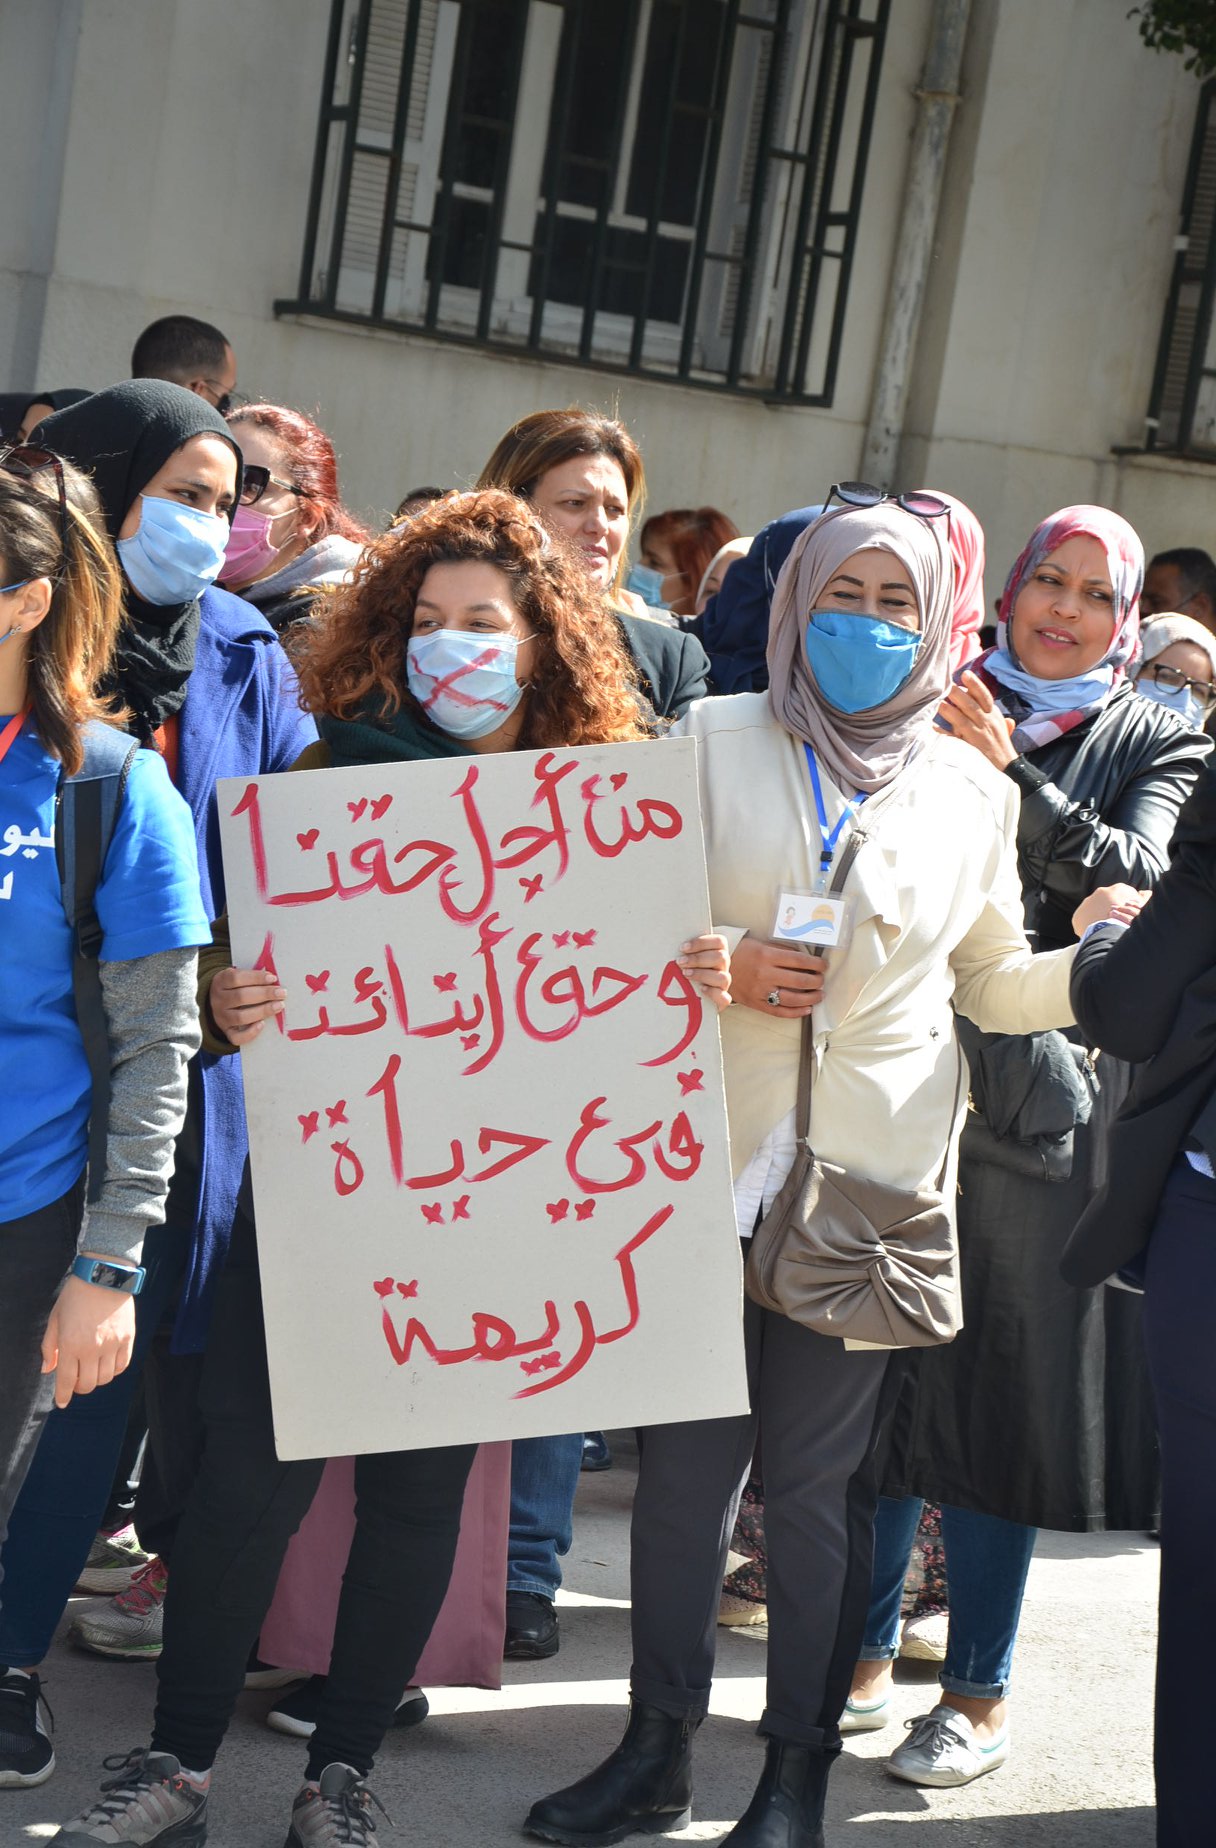 من أجل حقنا
وحق أبنائنا
في حياة
كريمة